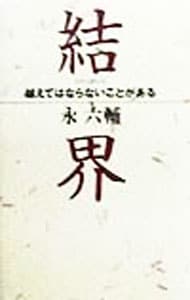 結界
越えてはならないことがある
永六輔